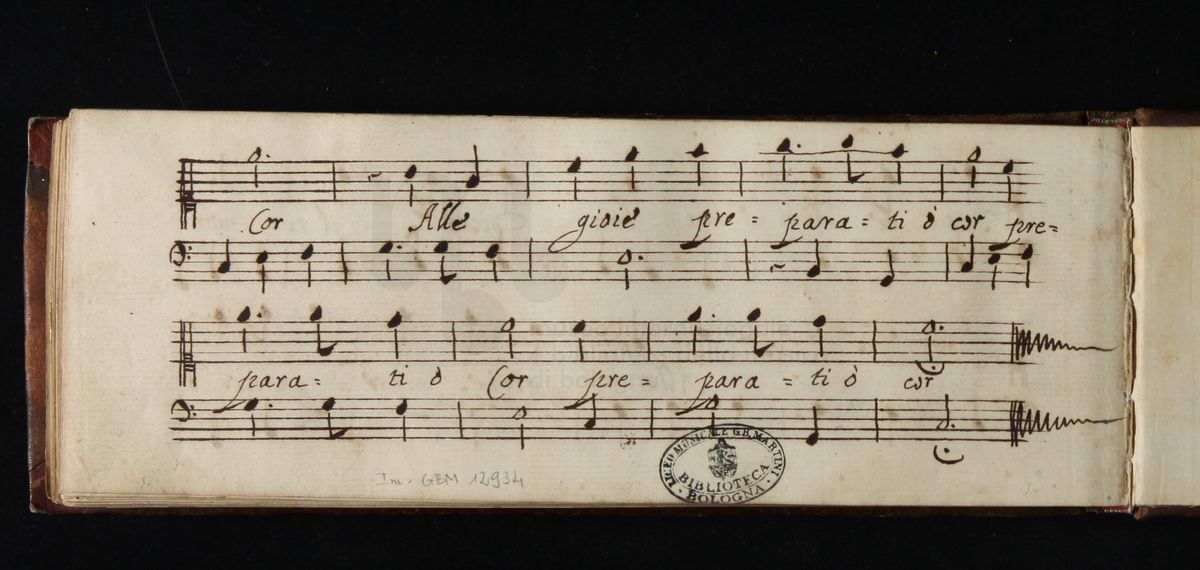 Cor Alle gioie pre = para = ti ò cor pre=
para = ti ò Cor pre = para = ti ò cor
Inv. GBM 12934
LICEO MUSICALE G.B. MARTINI
BIBLIOTECA
· BOLOGNA ·